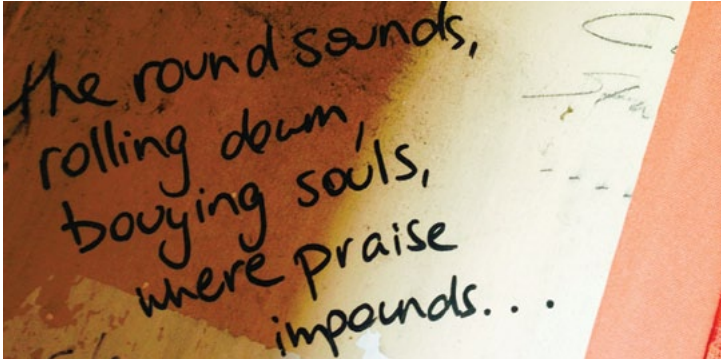 the round sounds,
rolling down,
bouying souls,
where praise
impounds...